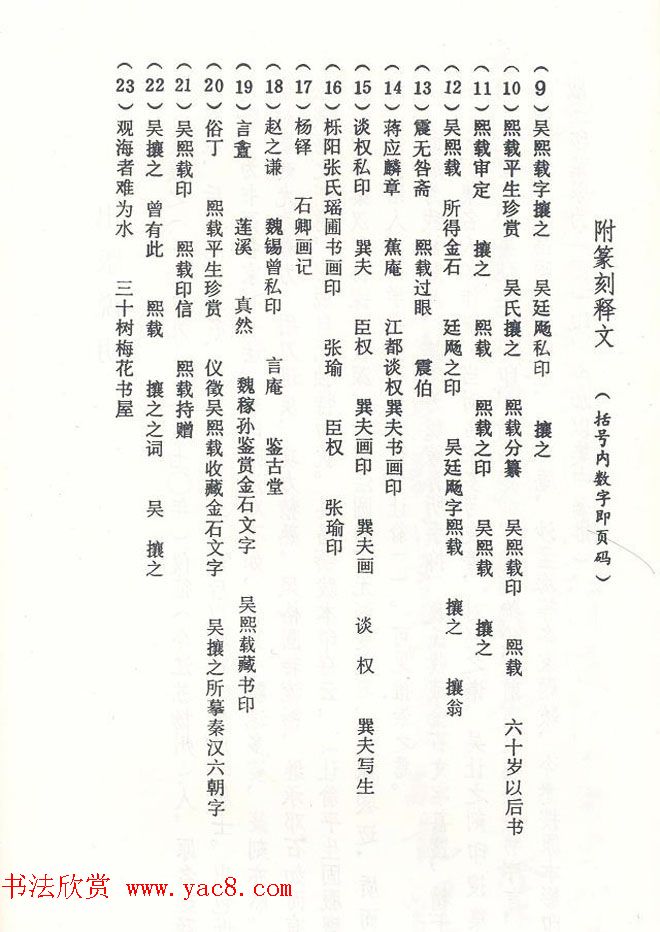 附篆刻释文 （括号内数字即页码）
（9）吴熙载字攘之 吴廷飏私印 攘之
（10）熙载平生珍赏 吴氏攘之 熙载分纂 吴熙载印 熙载 六十岁以后书
（11）熙载审定 攘之 熙载 熙载之印 吴熙载 攘之
（12）吴熙载 所得金石 廷飏之印 吴廷飏字熙载 攘之 攘翁
（13）震无咎斋 熙载过眼 震伯
（14）蒋应麟章 蕉庵 江都谈权巽夫书画印
（15）谈权私印 巽夫 臣权 巽夫画印 巽夫画 谈权 巽夫写生
（16）栎阳张氏瑶圃书画印 张瑜 臣权 张瑜印
（17）杨铎 石卿画记
（18）赵之谦 魏锡曾私印 言庵 鉴古堂
（19）言盦 莲溪 真然 魏稼孙鉴赏金石文字 吴熙载藏书印
（20）俗丁 熙载平生珍赏 仪徵吴熙载收藏金石文字 吴攘之所摹秦汉六朝字
（21）吴熙载印 熙载印信 熙载持赠
（22）吴攘之 曾有此 熙载 攘之之词 吴 攘之
（23）观海者难为水 三十树梅花书屋
书法欣赏 www.yac8.com